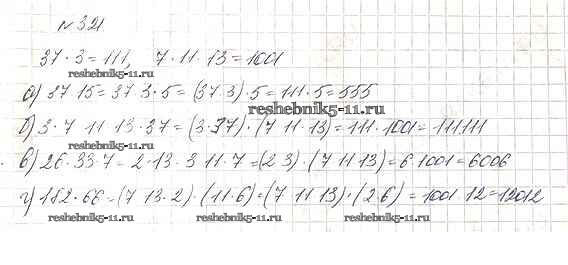 №321
37·3=111, 7·11·13=1001
reshebnik5-11.ru
а) 37 15=37 3·5=(37 3)·5=111·5=555
reshebnik5-11.ru
б) 3·7 11 13·37=(3·37)·(7 11 13)=111·1001=111111
reshebnik5-11.ru
в) 26·33·7=2·13·3 11·7=(2 3)·(7 11 13)=6 1001=6006
reshebnik5-11.ru
г) 182·66=(7 13·2)·(11·6)=(7 11 13)·(2 6)=1001 12=12012
reshebnik5-11.ru reshebnik5-11.ru reshebnik5-11.ru